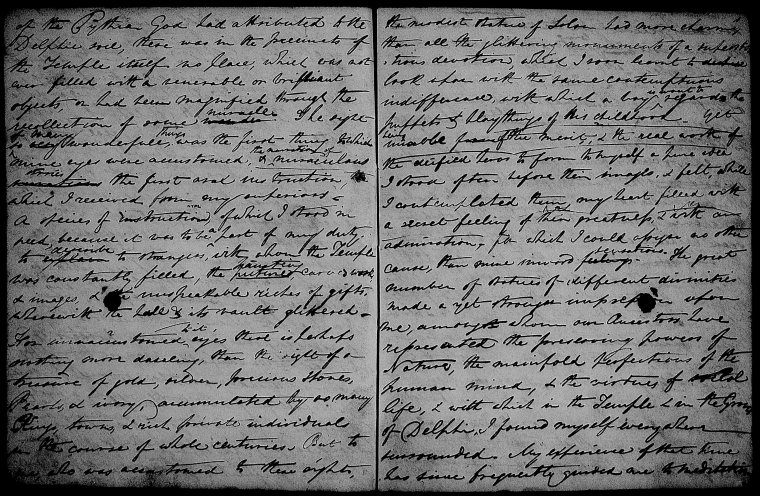 of the Pythian God had attributed to the
Delphic soil, there was in the precincts of
the Temple itself no place, which was not
over filled with a venerable or brilliant
objects, or had been magnified through the
recollection of some miracle. The sight
so many wonderfull things, was the first thing to which
mine eyes were accustomed, & miraculous
stories the first oral instruction,
which I received from my superiors –
A species of instruction, of which I stood in
need, because it was to be a part of my duty
to explain to strangers, with whom the Temple
was constantly filled, the pictures carv'd work
& images, & the unspeakable riches of gifts,
wherewith the hall & its vault glittered –
For unaccustomed eyes there is perhaps
nothing more dazzling, than the sight of a
treasure of gold, silver, precious stones,
Pearls, & ivory, accumulated by so many
Kings, towns, & rich private individual
in the course of whole centuries. But to
me who was accustomed to these sights,
the modest statue of Solon had more charms
than all the glittering monuments of a superstit
-tious devotion, which I soon learnt to
look upon with the same contemptuous
indifference, with which a boy is wont to regard the
puppets & playthings of his childhood. Yet
unable of the merits, & the real worth of
the deified heros to form to myself a pure idea
I stood often before their images, & felt, while
I contemplated them, my heart filled with
a secret feeling of their greatness, & with an
admiration, for which I could assign no other
cause, than mine inward feelings. The great
number of statues of different divinities
made a yet stronger impression upon
me, amongst whom our Ancestors have
represented the preserving powers of
Nature, the manifold perfections of the
human mind, & the virtues of social
life, & with which in the Temple & in the Grove
of Delphi, I found myself every where
surrounded. My experience of that time
has since frequently guided me to meditation